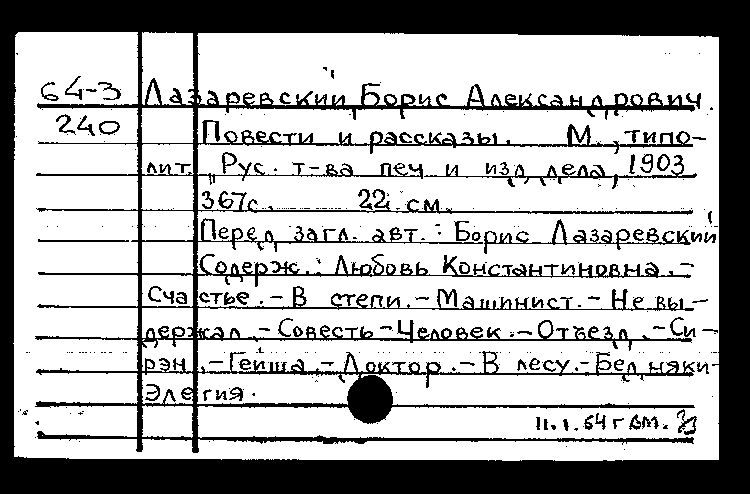 64-3 Лазаревский, Борис Александрович.
240 Повести и рассказы. М., типо-
лит. "Рус. т-ва печ и изд дела, 1903
367с. 22 см.
Перед загл. авт.: Борис Лазаревский
Содерж.: Любовь Константиновна.-
Счастье.-В степи.-Машинист.-Не вы-
держал.-Совесть-Человек.-Отъезд.-Си-
рэн.-Гейша.-Доктор.-В лесу.-Бедняки-
Элегия.
11.1.64г ВМ.